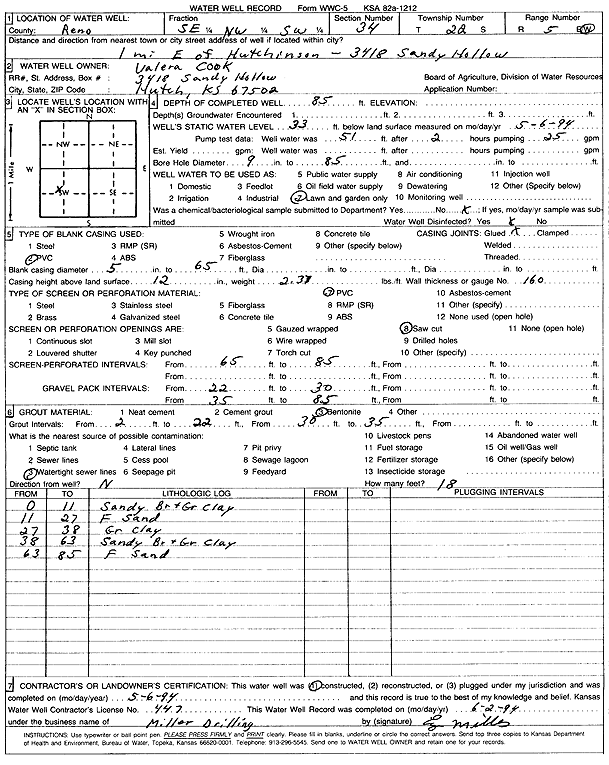 WATER WELL RECORD Form WWC-5 KSA 82a-1212
1 LOCATION OF WATER WELL: Fraction Section Number Township Number Range Number
County: Reno SE ¼ NW ¼ SW ¼ 34 T 22 S R 5 E/W
Distance and direction from nearest town or city street address of well if located within city?
1 mi E of Hutchinson - 3418 Sandy Hollow
2 WATER WELL OWNER: Valera Cook
RR#, St. Address, Box # : 3418 Sandy Hollow Board of Agriculture, Division of Water Resources
City, State, ZIP Code : Hutch, KS 67502 Application Number:
3 LOCATE WELL'S LOCATION WITH AN "X" IN SECTION BOX: 4 DEPTH OF COMPLETED WELL 85 ft. ELEVATION:
Depth(s) Groundwater Encountered 1 ft. 2 ft. 3 ft.
WELL'S STATIC WATER LEVEL 33 ft. below land surface measured on mo/day/yr 5-6-94
Pump test data: Well water was 51 ft. after 2 hours pumping 25 gpm
Est. Yield gpm: Well water was ft. after hours pumping gpm
Bore Hole Diameter 9 in. to 85 ft., and in. to ft.
WELL WATER TO BE USED AS: 5 Public water supply 8 Air conditioning 11 Injection well
1 Domestic 3 Feedlot 6 Oil field water supply 9 Dewatering 12 Other (Specify below)
2 Irrigation 4 Industrial 7 Lawn and garden only 10 Monitoring well
Was a chemical/bacteriological sample submitted to Department? Yes No X; If yes, mo/day/yr sample was submitted Water Well Disinfected? Yes X No
N
NW NE
W E
SW SE
X
S
1 Mile
5 TYPE OF BLANK CASING USED: 5 Wrought iron 8 Concrete tile CASING JOINTS: Glued X Clamped
1 Steel 3 RMP (SR) 6 Asbestos-Cement 9 Other (specify below) Welded
2 PVC 4 ABS 7 Fiberglass Threaded
Blank casing diameter 5 in. to 65 ft., Dia in. to ft., Dia in. to ft.
Casing height above land surface 12 in., weight 2.38 lbs./ft. Wall thickness or gauge No. 160
TYPE OF SCREEN OR PERFORATION MATERIAL: 7 PVC 10 Asbestos-cement
1 Steel 3 Stainless steel 5 Fiberglass 8 RMP (SR) 11 Other (specify)
2 Brass 4 Galvanized steel 6 Concrete tile 9 ABS 12 None used (open hole)
SCREEN OR PERFORATION OPENINGS ARE: 5 Gauzed wrapped 8 Saw cut 11 None (open hole)
1 Continuous slot 3 Mill slot 6 Wire wrapped 9 Drilled holes
2 Louvered shutter 4 Key punched 7 Torch cut 10 Other (specify)
SCREEN-PERFORATED INTERVALS: From 65 ft. to 85 ft., From ft. to ft.
From ft. to ft., From ft. to ft.
GRAVEL PACK INTERVALS: From 22 ft. to 30 ft., From ft. to ft.
From 35 ft. to 85 ft., From ft. to ft.
6 GROUT MATERIAL: 1 Neat cement 2 Cement grout 3 Bentonite 4 Other
Grout Intervals: From 2 ft. to 22 ft., From 30 ft. to 35 ft., From ft. to ft.
What is the nearest source of possible contamination: 10 Livestock pens 14 Abandoned water well
1 Septic tank 4 Lateral lines 7 Pit privy 11 Fuel storage 15 Oil well/Gas well
2 Sewer lines 5 Cess pool 8 Sewage lagoon 12 Fertilizer storage 16 Other (specify below)
3 Watertight sewer lines 6 Seepage pit 9 Feedyard 13 Insecticide storage
Direction from well? N How many feet? 18
FROM TO LITHOLOGIC LOG FROM TO PLUGGING INTERVALS
0 11 Sandy Br + Gr Clay
11 27 F Sand
27 38 Gr Clay
38 63 Sandy Br + Gr Clay
63 85 F Sand
7 CONTRACTOR'S OR LANDOWNER'S CERTIFICATION: This water well was (1) constructed, (2) reconstructed, or (3) plugged under my jurisdiction and was
completed on (mo/day/year) 5-6-94 and this record is true to the best of my knowledge and belief. Kansas
Water Well Contractor's License No. 447 This Water Well Record was completed on (mo/day/yr) 6-2-94
under the business name of Miller Drilling by (signature)
INSTRUCTIONS: Use typewriter or ball point pen. PLEASE PRESS FIRMLY and PRINT clearly. Please fill in blanks, underline or circle the correct answers. Send top three copies to Kansas Department
of Health and Environment, Bureau of Water, Topeka, Kansas 66620-0001. Telephone: 913-296-5545. Send one to WATER WELL OWNER and retain one for your records.